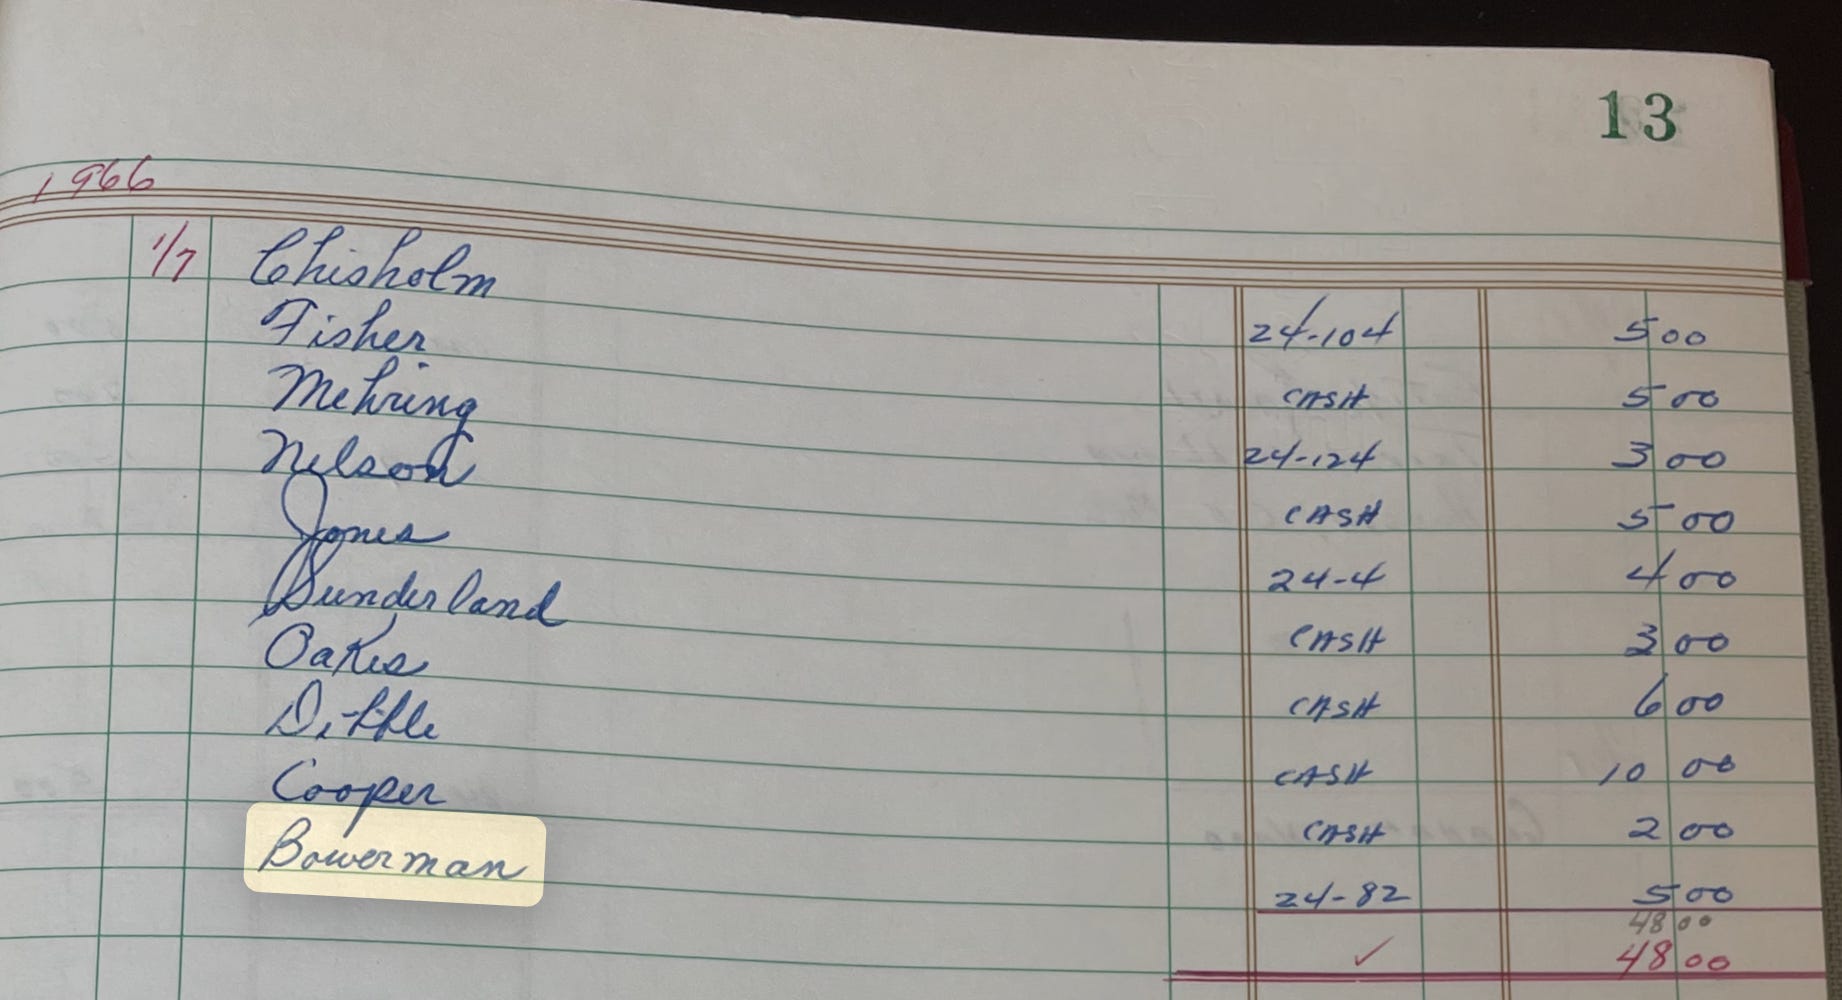 13
1966
1/7 Chisholm 24-104 5 00
Fisher CASH 5 00
Mehring 24-124 3 00
Nelson CASH 5 00
Jones 24-4 4 00
Sunderland CASH 3 00
Oakes CASH 6 00
CASH 10 00
Cooper CASH 2 00
Bowerman 24-82 5 00
48 00
✓ 48 00